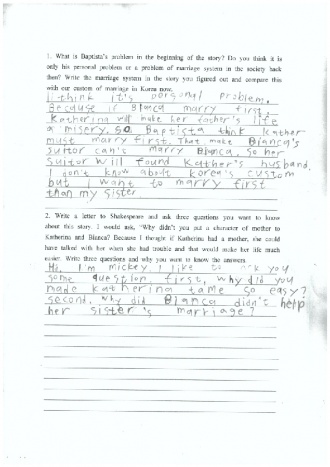 1. What is Baptista's problem in the beginning of the story? Do you think it is
only his personal problem or a problem of marriage system in the society back
then? Write the marriage system in the story you figured out and compare this
with our custom of marriage in Korea now.
I think it's personal problem.
Because if Biaca marry first,
Kathering will make her father's life
a misery. So Baptista think kather
must marry first. That make Bianca's
suitor can't marry Bianca. So her
suitor will found Kather's husband.
I don't know about Korea's custom
but I want to marry first
than my sister
2. Write a letter to Shakespeare and ask three questions you want to know
about this story. I would ask, "Why didn't you put a character of mother to
Katherina and Bianca? Because I thought if Katherina had a mother, she could
have talked with her when she had trouble and that would make her life much
easier. Write three questions and why you want to know the answers.
Hi, I'm mickey. I like to ask you
some question. first, why did you
made Katherina tame so easy?
second, why did Bianca didn't help
her sister's marriage?